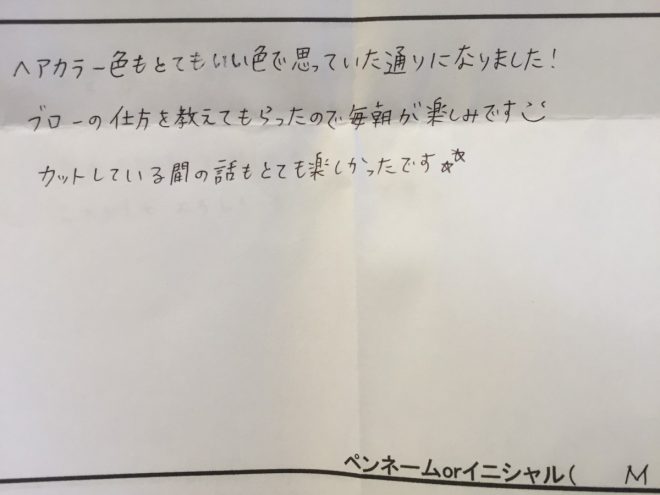 ヘアカラー色もとてもいい色で思っていた通りになりました!
ブローの仕方を教えてもらったので毎朝が楽しみです
カットしている間の話もとても楽しかったです
ペンネームorイニシャル( M